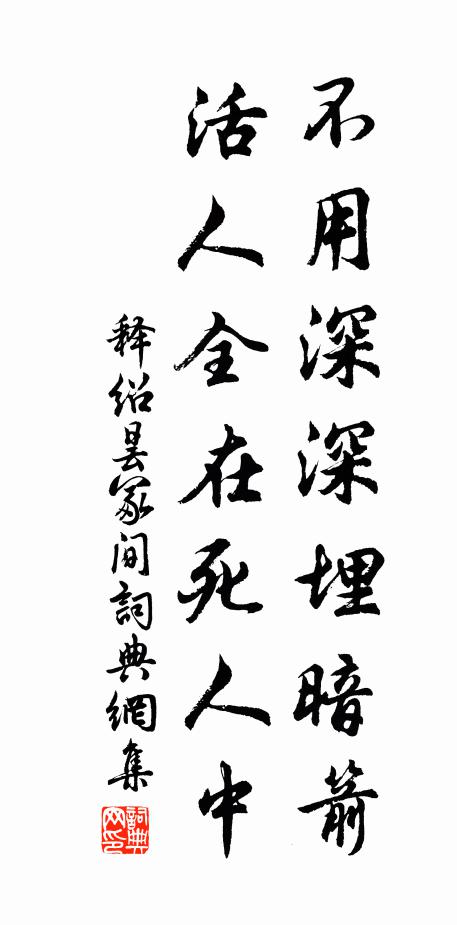 不用深深埋暗箭
活人全在死人中
释绍昙冢间词典網集
詞典网印